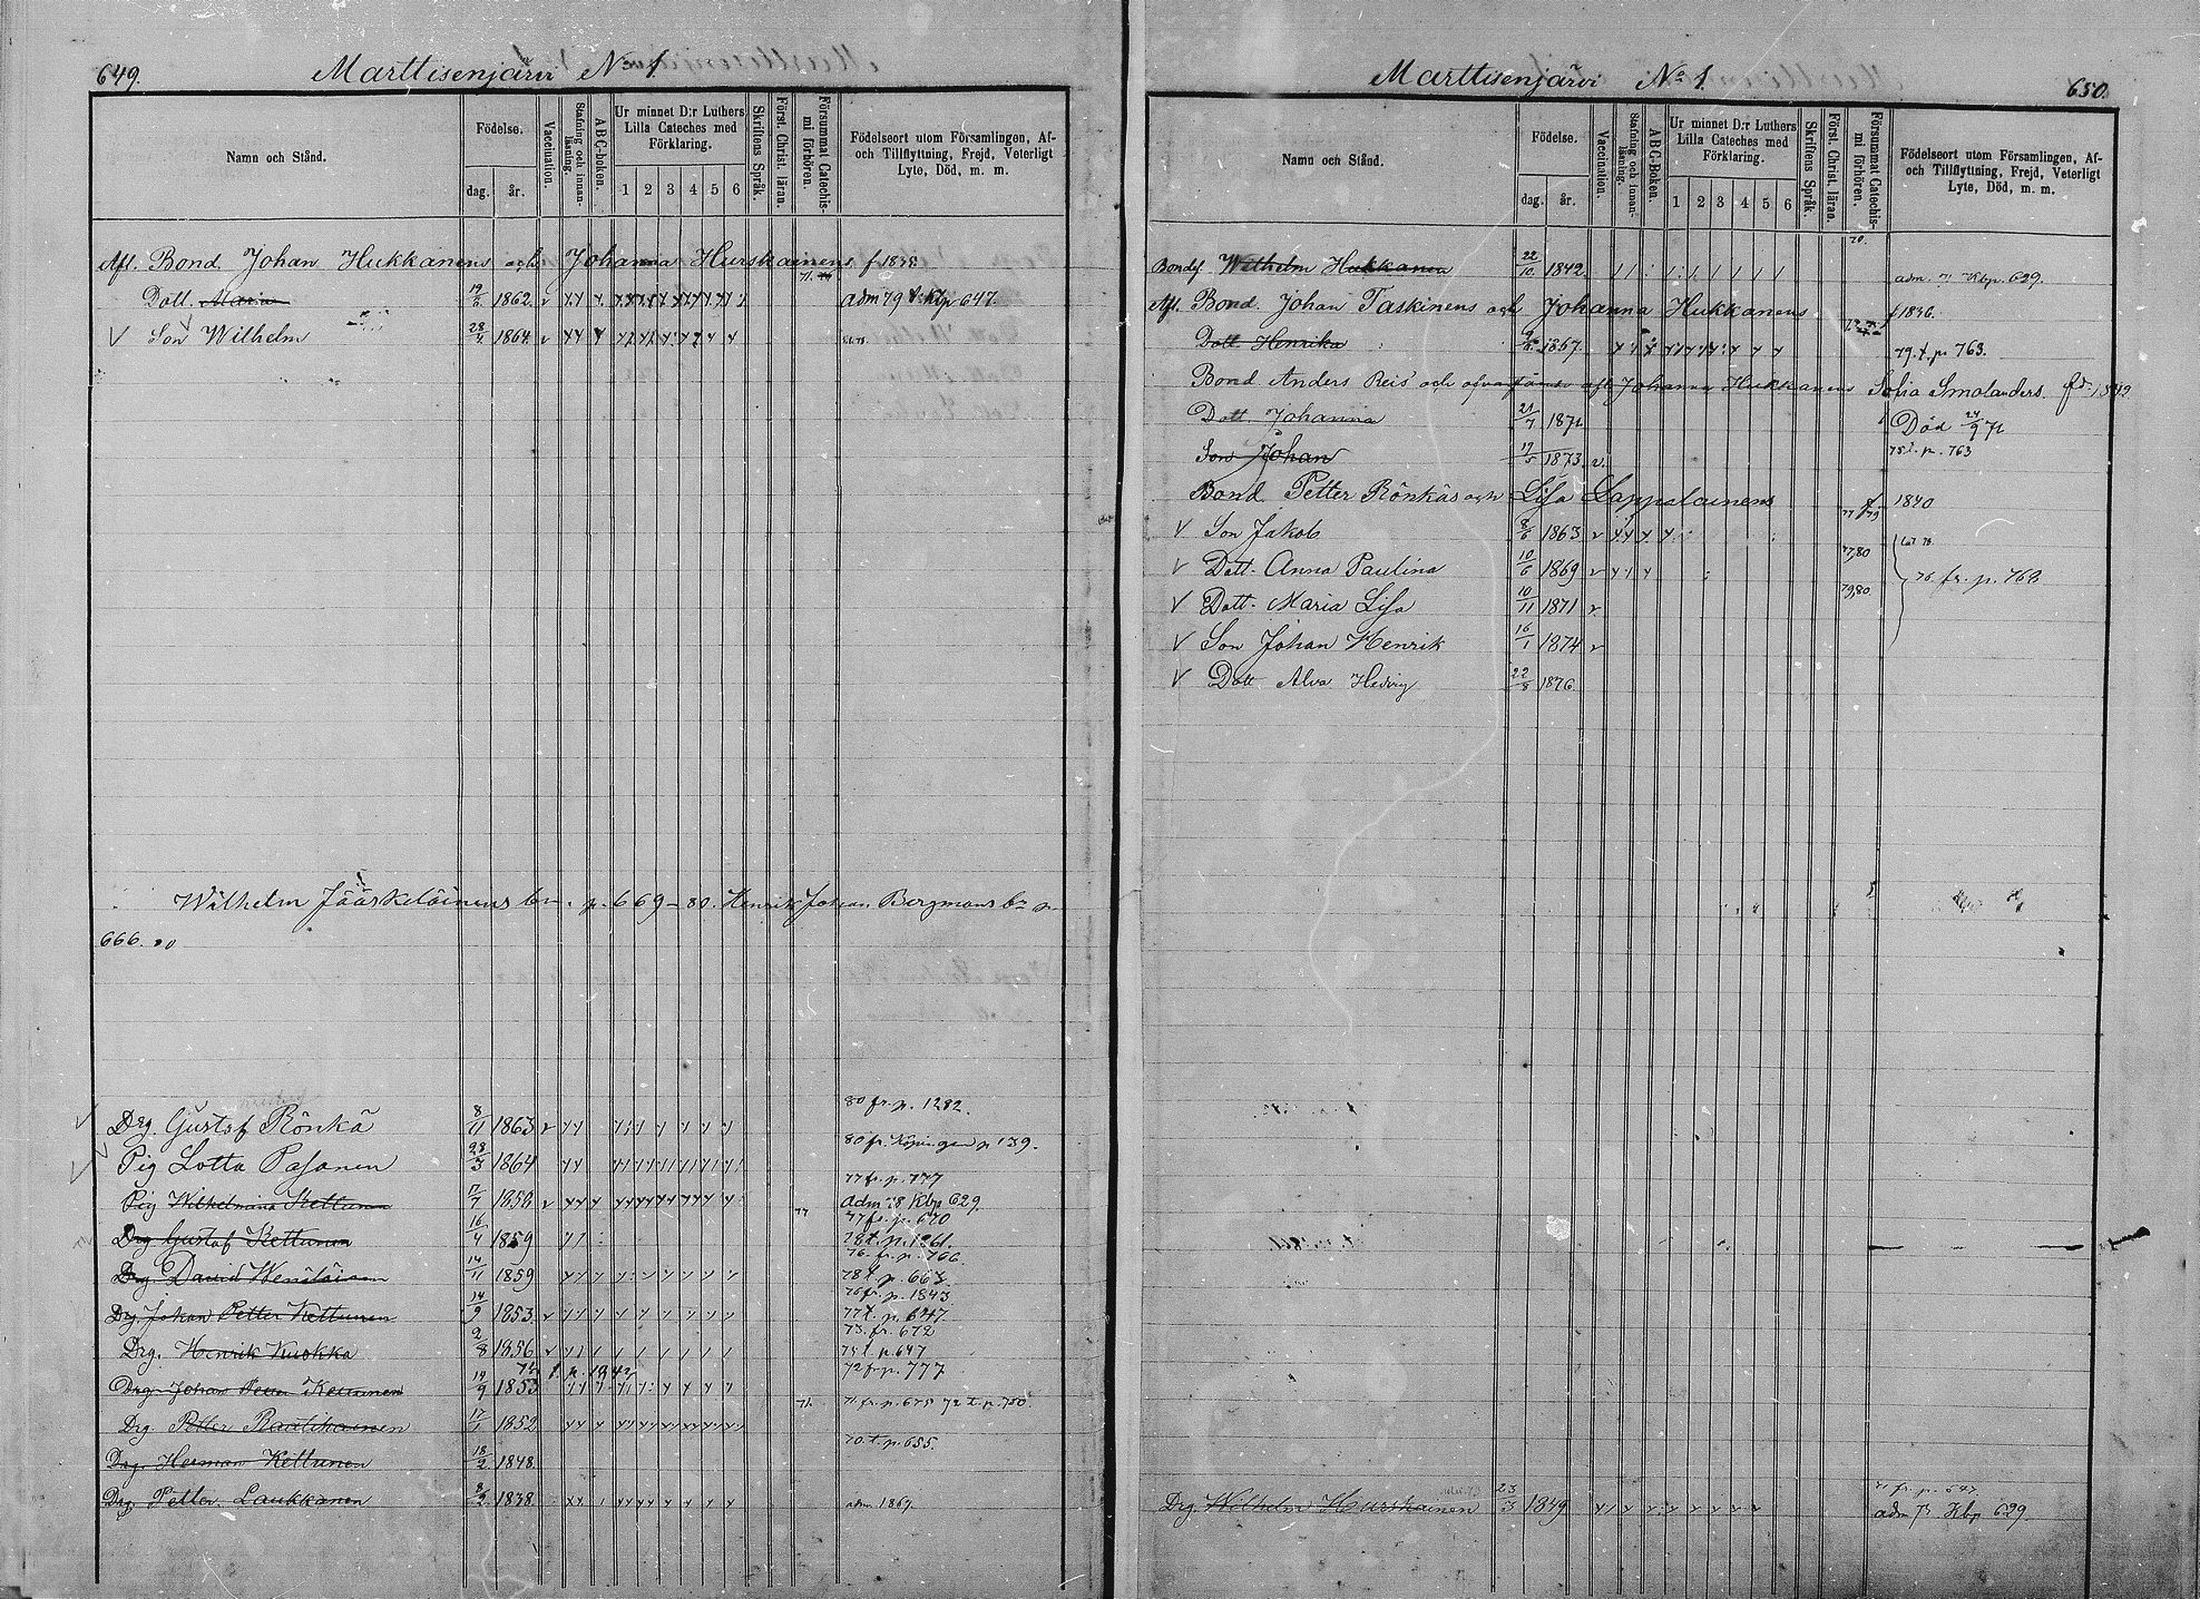 649. Marttisenjärvi No 1.
Namn och Stånd.
Födelse.
dag. år.
Vaccination.
Stafning och innan-läsning.
ABC-boken.
Ur minnet D:r Luthers
Lilla Cateches med
Förklaring.
1 2 3 4 5 6
Skriftens Språk.
Först. Christ. läran.
Försummat Catechis-mi förhören.
Födelseort utom Församlingen, Af-
och Tillflyttning, Frejd, Veterligt
Lyte, Död, m. m.
Afl. Bond. Johan Hukkanens och Johanna Hurskainens f 1838
Dott. Maria 19/6 1862 v adm 79 Kbp 647.
V Son Wilhelm 28/4 1864 v
Wilhelm Jääskeläinens p. 669 - 80. Henrik Johan Bergmans
666.
80 fr. p. 1282.
Drg. Gustaf Rönkä 8/11 1863 v
80 fr. p 139.
Pig Lotta Pasanen 28/3 1864
77 fr. p. 777
Pig Wilhelmina Kettunen 17/7 1858 v adm 78 Kbp 629
77 fr. p. 670
Drg Gustaf Kettunen 16/4 1859 78 t. p. 1261.
76. fr. p. 766
Drg. David Wenäläinen 14/11 1859 78 t. p. 663
76 fr. p. 1843
Drg Johan Petter Kettunen 14/9 1853 v 77 t. p. 647
73. fr. 672
Drg. Henrik Kuokka 2/8 1856 v 75 t. p. 647
72 fr p. 777
Drg. Johan Petter Kettunen 19/9 1853
71. 71. fr. p. 675 72 t. p. 750.
Drg. Petter Raatikainen 17/1 1852
70. t. p. 655.
Drg. Herman Kettunen 18/2 1848
Drg Petter Laukkanen 8/2 1838 adm. 1869.
Marttisenjärvi No 1. 650.
Namn och Stånd.
Födelse.
dag. år.
Vaccination.
Stafning och innan-läsning.
ABC-boken.
Ur minnet D:r Luthers
Lilla Cateches med
Förklaring.
1 2 3 4 5 6
Skriftens Språk.
Först. Christ. läran.
Försummat Catechis-mi förhören.
Födelseort utom Församlingen, Af-
och Tillflyttning, Frejd, Veterligt
Lyte, Död, m. m.
70.
Wilhelm Hukkanen 22/10 1842 adm. 71 Kbp. 629.
Afl. Bond. Johan Taskinens och Johanna Hukkanens f 1836.
Dott. Henrika 1867 79. t. p. 763.
Bond. Anders Reis och afl. Johanna Hukkanens Sofia Smolanders fd. 1849
Dott. Johanna 21/7 1872 Död 24/9 72
Son Johan 17/5 1873 v. 75 t. p. 763
Bond. Petter Rönkäs och Lisa Lappalainens f 1840
V Son Jakob 8/6 1863 v 77 79
V Dott. Anna Paulina 10/6 1869 v 77,80 76. fr. p. 768.
V Dott. Maria Lisa 10/11 1871 v. 79,80
V Son Johan Henrik 16/1 1874 v
V Dott Alva Hedvig 22/8 1876
71 fr. p. 647
Drg. Wilhelm Hurskainen 23/3 1849 adm 73 Kbp 629.